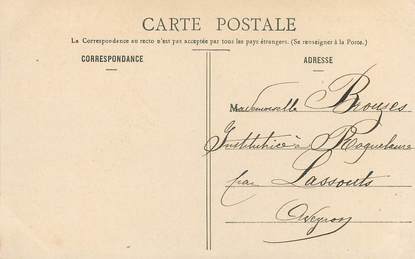 CARTE POSTALE
La Correspondance au recto n'est pas acceptée par tous les pays étrangers. (Se renseigner à la Poste.)
CORRESPONDANCE
ADRESSE
Mademoiselle Brouzes
Institutrice à Roquelaure
par Lassouts
Aveyron